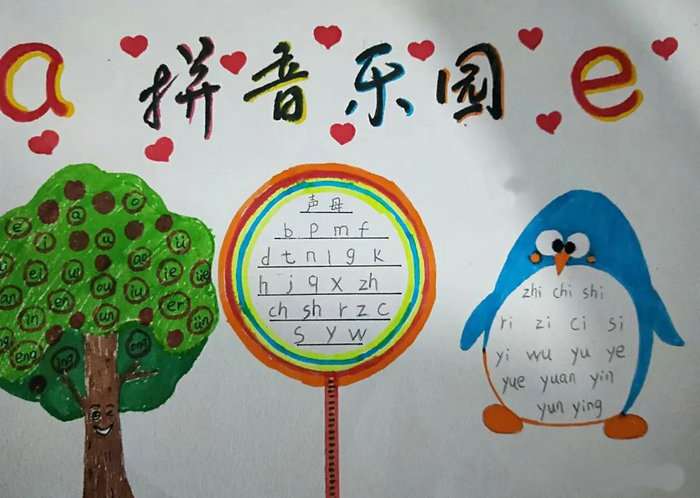 a 拼音乐园 e
e i a o
i a o ü
ei ui ao
ai ou iu ie üe
an er
in un ün
eng ing ong
声母
b p m f
d t n l g k
h j q x zh
ch sh r z c
s y w
zhi chi shi
ri zi ci si
yi wu yu ye
yue yuan yin
yun ying